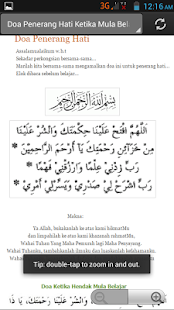 12:16 AM
Doa Penerang Hati Ketika Mula Bel
Doa Penerang Hati
Assalamualaikum w.b.t
Sekadar perkongsian bersama-sama...
Marilah kita bersama-sama mengamalkan doa ini untuk penerang hati...
Elok dibaca sebelum belajar...
بسم الله الرحمن الرحيم
اَللّٰهُمَّ افْتَحْ عَلَيْنَا حِكْمَتَكَ وَانْشُرْ عَلَيْنَا
مِنْ خَزَائِنِ رَحْمَتِكَ يَا أَرْحَمَ الرَّاحِمِيْنَ *
رَبِّ زِدْنِيْ عِلْمًا وَارْزُقْنِيْ فَهْمًا *
رَبِّ اشْرَحْ لِيْ صَدْرِيْ وَيَسِّرْلِيْ أَمْرِيْ *
Makna:
Ya Allah, bukakanlah ke atas kami hikmatMu
dan limpahilah ke atas kami khazanah rahmatMu,
Wahai Tuhan Yang Maha Pemurah lagi Maha Penyayang.
Wahai Tuhanku, tambahkanlah
Wahai Tuhanku, lapangkanlah
Tip: double-tap to zoom in and out.
Doa Ketika Hendak Mula Belajar
اَللّٰهُمَّ افْتَحْ عَلَيْنَا حِكْمَتَكَ وَانْشُرْ عَلَيْنَا رَحْمَتَكَ، يَا ذَا